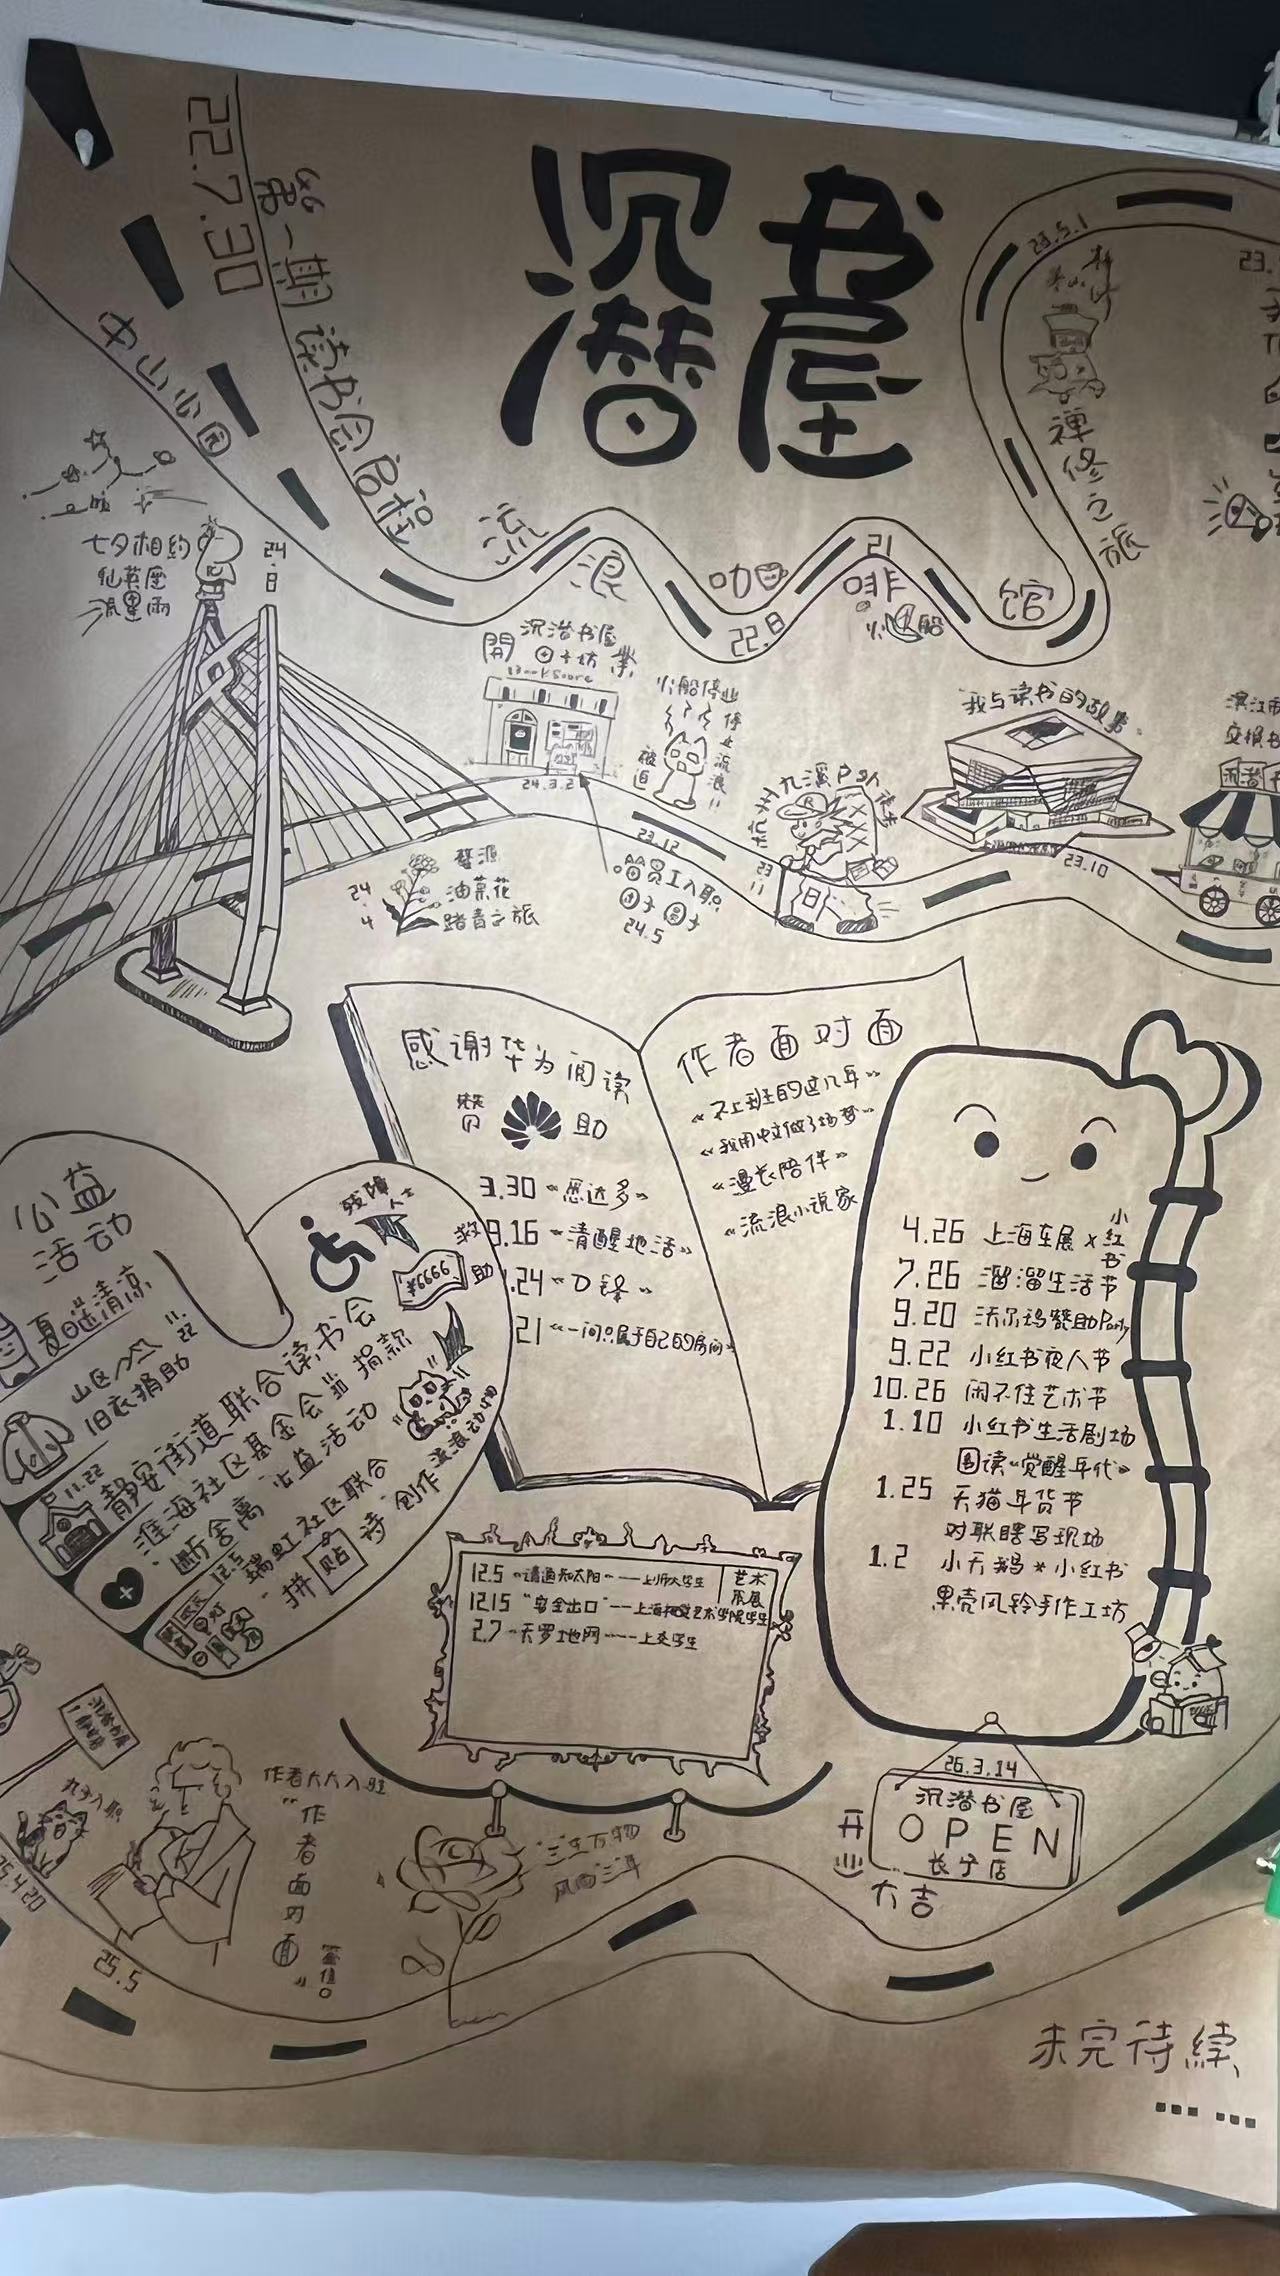 沉潜
书屋
22.7.30
第一期读书会启程
中山公园
流浪咖啡馆
22.8
21
23.5.1
禅修之旅
23.
七夕相约
仙英座
流星雨
24.8
開業
沉潜书屋
田子坊
BookStore
24.3.2
船停业
被迫
停业流浪
24.4
婺源
油菜花
踏青之旅
猫员工入职
24.5
23.12
杭州九溪
23.11
我与读书的故事
23.10
滨江
交换书
沉潜书
感谢华为阅读
赞助
3.30《悉达多》
9.16《清醒地活》
.24《刀锋》
21《一间只属于自己的房间》
作者面对面
《不上班的这几年》
《我用中文做了场梦》
《漫长陪伴》
《流浪小说家》
公益
活动
夏日送清凉
山区
旧衣捐助
11.22
残障人士
救助
¥6666
11.22
静安街道联合读书会
淮海社区基金会 捐款
断舍离 公益活动
流浪动物
12.5
瑞虹社区联合
拼贴诗 创作
4.26 上海车展×小红书
7.26 溜溜生活节
9.20 沃尔玛赞助Party
9.22 小红书夜人节
10.26 闲不住艺术节
1.10 小红书生活剧场
围读《觉醒年代》
1.25 天猫年货节
对联瞎写现场
1.2 小天鹅*小红书
果壳风铃手作工坊
艺术
展
12.5 《请通知太阳》——上师大学生
12.15 "安全出口"——上海视觉艺术学院学生
2.7 《天罗地网》——上交学生
26.3.14
沉潜书屋
OPEN
长宁店
开业大吉
沉潜书屋
九子入职
25.4.20
作者大大入驻
"作者面对面"
25.5
"三"生万物
风雨"三"年
未完待续
……